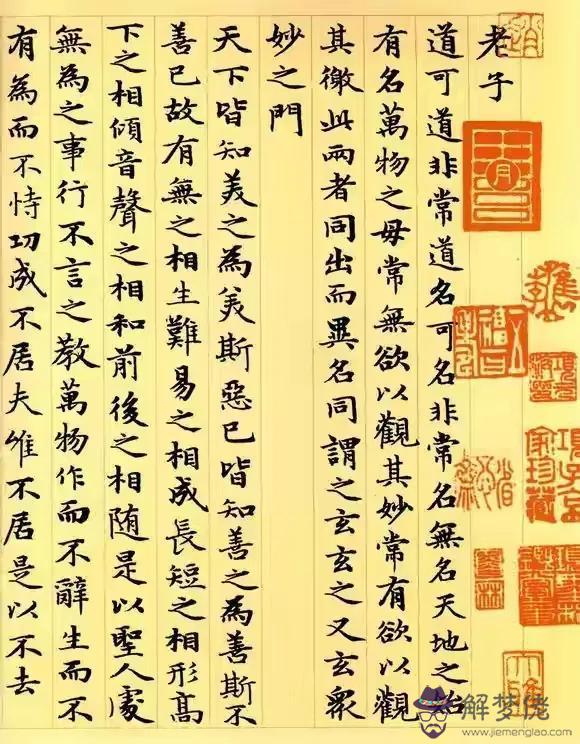 老子
道可道非常道名可名非常名無名天地之始
有名萬物之母常無欲以觀其妙常有欲以觀
其徼此兩者同出而異名同謂之玄玄之又玄眾
妙之門
天下皆知美之為美斯惡已皆知善之為善斯不
善已故有無之相生難易之相成長短之相形高
下之相傾音聲之相和前後之相随是以聖人處
無為之事行不言之教萬物作而不辭生而不
有為而不恃功成不居夫惟不居是以不去
項子京
家珍藏
解梦佬
www.jiemenglao.com